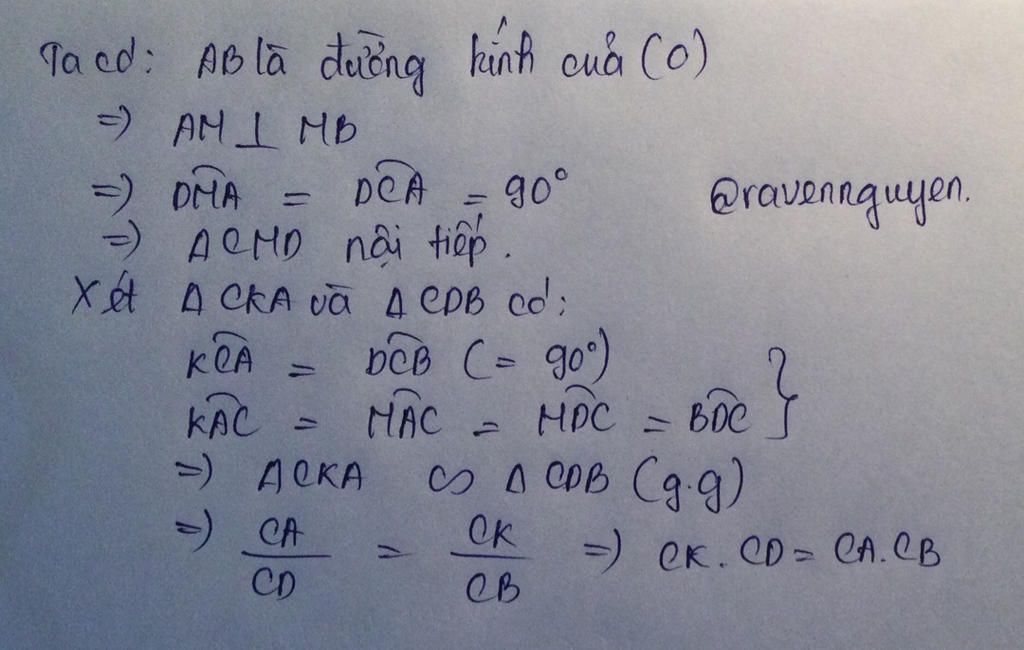 Ta có: AB là đường kính của (O)
=> AM ⊥ MB
=> \widehat{DMA} = \widehat{DCA} = 90°
@ravennguyen.
=> ACMD nội tiếp.
Xét Δ CKA và Δ CDB có:
\widehat{KCA} = \widehat{DCB} (= 90°)
\widehat{KAC} = \widehat{MAC} = \widehat{MDC} = \widehat{BDC} }
=> ΔCKA ∽ Δ CDB (g.g)
=> \frac{CA}{CD} = \frac{CK}{CB} => CK . CD = CA.CB